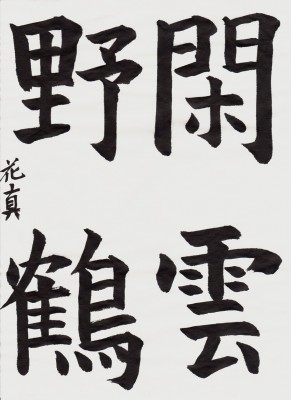 閑雲
野鶴
花真